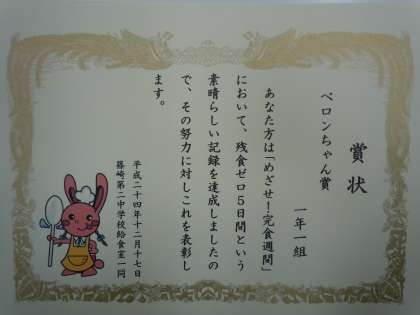 賞状
ペロンちゃん賞
一年一組
あなた方は「めざせ！完食週間」
において、残食ゼロ５日間という
素晴らしい記録を達成しましたの
で、その努力に対しこれを表彰し
ます。
平成二十四年十二月十七日
篠崎第二中学校給食室一同